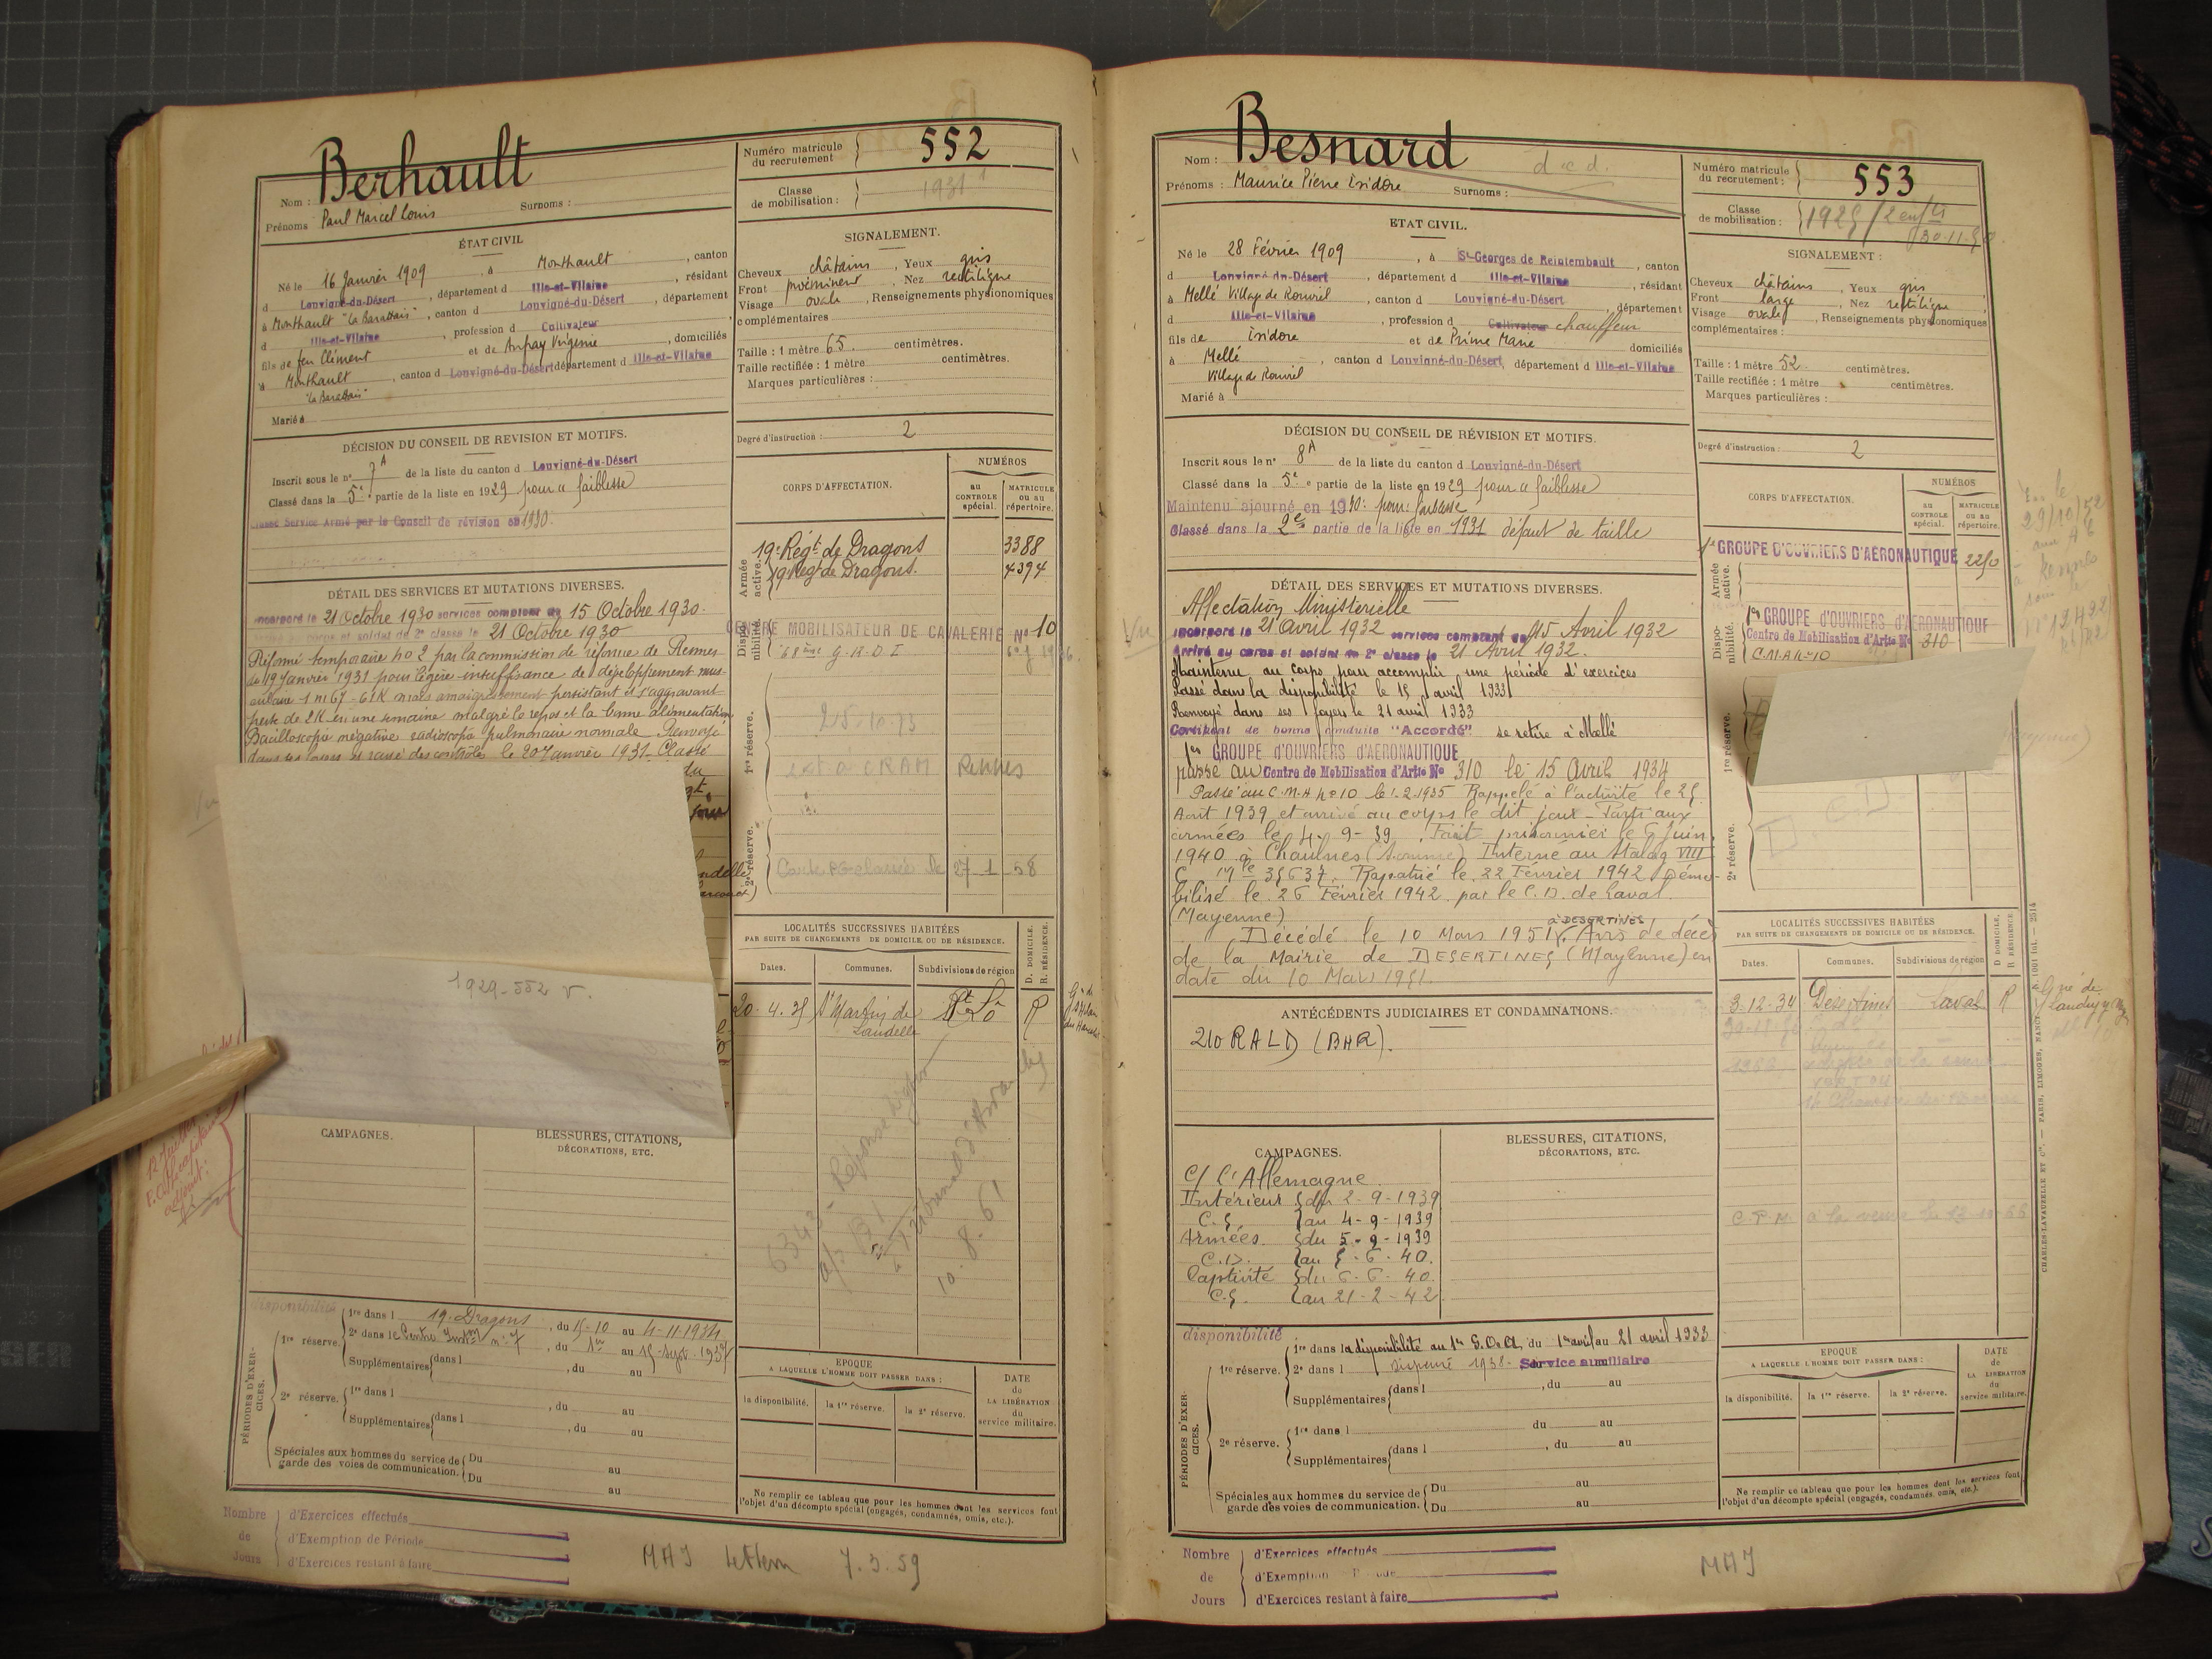 Berhault
Nom :
Prénoms Paul Marcel Louis Surnoms :
Numéro matricule du recrutement 552
Classe de mobilisation : 1931
ÉTAT CIVIL
Né le 16 Janvier 1909, à Monthault, canton
d Louvigné-du-Désert, département d Ille-et-Vilaine, résidant
à Monthault "La Barattais", canton d Louvigné-du-Désert, département
d Ille-et-Vilaine, profession d Cultivateur
fils de feu Clément et de Anfray Virginie, domiciliés
à Monthault, canton d Louvigné-du-Désert département d Ille-et-Vilaine
"La Barattais"
Marié à
SIGNALEMENT.
Cheveux châtains, Yeux gris
Front proéminent, Nez rectiligne
Visage ovale, Renseignements physionomiques
complémentaires
Taille : 1 mètre 65 centimètres.
Taille rectifiée : 1 mètre centimètres.
Marques particulières :
Degré d'instruction : 2
DÉCISION DU CONSEIL DE REVISION ET MOTIFS.
Inscrit sous le n° 7A de la liste du canton d Louvigné-du-Désert
Classé dans la 5e partie de la liste en 1929 pour "faiblesse
Classé Service Armé par le Conseil de révision en 1930.
CORPS D'AFFECTATION.
NUMÉROS
au CONTROLE spécial.
MATRICULE OU au répertoire.
Armée active.
19e Régt de Dragons 3388
19e Régt de Dragons. 4394
Disponibilité.
CENTRE MOBILISATEUR DE CAVALERIE N° 10
68ème G.R.D.I
1re réserve.
2e réserve.
27-1-58
DÉTAIL DES SERVICES ET MUTATIONS DIVERSES.
Incorporé le 21 Octobre 1930 services comptent du 15 Octobre 1930.
Arrivé au corps et soldat de 2e classe le 21 Octobre 1930
Réformé temporaire no 2 par la commission de réforme de Rennes
du 19 Janvier 1931 pour légère insuffisance de développement mus-
culaire - 1m67 - 61K mais amaigrissement persistant et s'aggravant
perte de 2K en une semaine malgré le repos et la bonne alimentation
Bacilloscopie négative radioscopie pulmonaire normale. Renvoyé
dans ses foyers et rayé des contrôles le 20 Janvier 1931. Classé
1929-552 v.
LOCALITÉS SUCCESSIVES HABITÉES
PAR SUITE DE CHANGEMENTS DE DOMICILE OU DE RÉSIDENCE.
Dates. Communes. Subdivisions de région D. DOMICILE. R. RÉSIDENCE.
20.4.35 St Martin de Landelle St Lô R
CAMPAGNES.
BLESSURES, CITATIONS, DÉCORATIONS, ETC.
10.8.61
disponibilité
PÉRIODES D'EXERCICES.
1re réserve. 1re dans l 19. Dragons, du 15-10 au 4-11-1934
2e dans le Centre n° 7, du 1er au 15 Sept. 193
Supplémentaires dans l, du au
2e réserve. 1re dans l, du au
Supplémentaires dans l, du au
Spéciales aux hommes du service de garde des voies de communication. Du au
Du au
EPOQUE A LAQUELLE L'HOMME DOIT PASSER DANS :
la disponibilité. la 1re réserve. la 2e réserve.
DATE de LA LIBÉRATION du service militaire.
Ne remplir ce tableau que pour les hommes dont les services font
l'objet d'un décompte spécial (engagés, condamnés, omis, etc.).
Nombre de Jours
d'Exercices effectués
d'Exemption de Période
d'Exercices restant à faire
MAJ 7.3.59
Besnard
Nom : dcd.
Prénoms : Maurice Pierre Isidore Surnoms :
Numéro matricule du recrutement : 553
Classe de mobilisation :
ETAT CIVIL.
Né le 28 Février 1909, à St-Georges de Reintembault, canton
d Louvigné-du-Désert, département d Ille-et-Vilaine, résidant
à Mellé Village de Rouvril, canton d Louvigné-du-Désert département
d Ille-et-Vilaine, profession d Cultivateur chauffeur
fils de Isidore et de Prime Marie domiciliés
à Mellé, canton d Louvigné-du-Désert, département d Ille-et-Vilaine
Village de Rouvril
Marié à
SIGNALEMENT :
Cheveux châtains, Yeux gris
Front large, Nez rectiligne
Visage ovale, Renseignements physionomiques
complémentaires :
Taille : 1 mètre 52 centimètres.
Taille rectifiée : 1 mètre centimètres.
Marques particulières :
Degré d'instruction : 2
DÉCISION DU CONSEIL DE RÉVISION ET MOTIFS.
Inscrit sous le n° 8A de la liste du canton d Louvigné-du-Désert
Classé dans la 5e partie de la liste en 1929 pour "faiblesse
Maintenu ajourné en 1930: pour: faiblesse
Classé dans la 2e partie de la liste en 1931 défaut de taille
CORPS D'AFFECTATION.
NUMÉROS
au CONTROLE spécial.
MATRICULE OU au répertoire.
Armée active.
1er GROUPE D'OUVRIERS D'AÉRONAUTIQUE
Disponibilité.
1er GROUPE D'OUVRIERS D'AÉRONAUTIQUE
Centre de Mobilisation d'Artie N° 310
C.M.A n°10
1re réserve.
2e réserve.
DÉTAIL DES SERVICES ET MUTATIONS DIVERSES.
Affectation Ministérielle
Incorporé le 21 avril 1932 services comptent du 15 Avril 1932
Arrivé au corps et soldat de 2e classe le 21 Avril 1932.
Maintenu au Corps pour accomplir une période d'exercices
Passé dans la disponibilité le 15 avril 1933
Renvoyé dans ses foyers le 21 avril 1933
Certificat de bonne conduite "Accordé" se retire à Mellé
1er GROUPE D'OUVRIERS D'AÉRONAUTIQUE
passé au Centre de Mobilisation d'Artie N° 310 le 15 Avril 1934
Passé au C.M.A n°10 le 1-2-1935 Rappelé à l'activité le 25
Août 1939 et arrivé au corps le dit jour - Parti aux
armées le 4-9-39 Fait prisonnier le 6 Juin
1940 à Chaulnes (Somme) Interné au Stalag VIII
C Mle 35637. Rapatrié le 22 Février 1942 Démo-
bilisé le 26 Février 1942 par le C.D. de Laval
(Mayenne)
Décédé le 10 Mars 1951 à DESERTINES. Avis de décès
de la Mairie de DESERTINES (Mayenne) en
date du 10 Mars 1951.
ANTÉCÉDENTS JUDICIAIRES ET CONDAMNATIONS.
210 RALD (BHR).
LOCALITÉS SUCCESSIVES HABITÉES
PAR SUITE DE CHANGEMENTS DE DOMICILE OU DE RÉSIDENCE.
Dates. Communes. Subdivisions de région D. DOMICILE. R. RÉSIDENCE.
3-12-34 Desertines Laval R
CAMPAGNES.
C/ l'Allemagne
Intérieur du 2-9-1939
C.S. au 4-9-1939
Armées du 5-9-1939
C.D. au 5.6.40.
Captivité du 6.6.40.
C.S. au 21-2-42
BLESSURES, CITATIONS, DÉCORATIONS, ETC.
disponibilité
PÉRIODES D'EXERCICES.
1re réserve. 1re dans la disponibilité au 1er G.O.A, du 15 avril au 21 avril 1933
2e dans l dispensé 1938 - Service auxiliaire
Supplémentaires dans l, du au
2e réserve. 1re dans l du au
Supplémentaires dans l, du au
Spéciales aux hommes du service de garde des voies de communication. Du au
Du au
EPOQUE A LAQUELLE L'HOMME DOIT PASSER DANS :
la disponibilité. la 1re réserve. la 2e réserve.
DATE de LA LIBÉRATION du service militaire.
Ne remplir ce tableau que pour les hommes dont les services font
l'objet d'un décompte spécial (engagés, condamnés, omis, etc.).
CHARLES-LAVAUZELLE ET Cie. — PARIS, LIMOGES, NANCY
Nombre de Jours
d'Exercices effectués
d'Exemption
d'Exercices restant à faire
MAJ